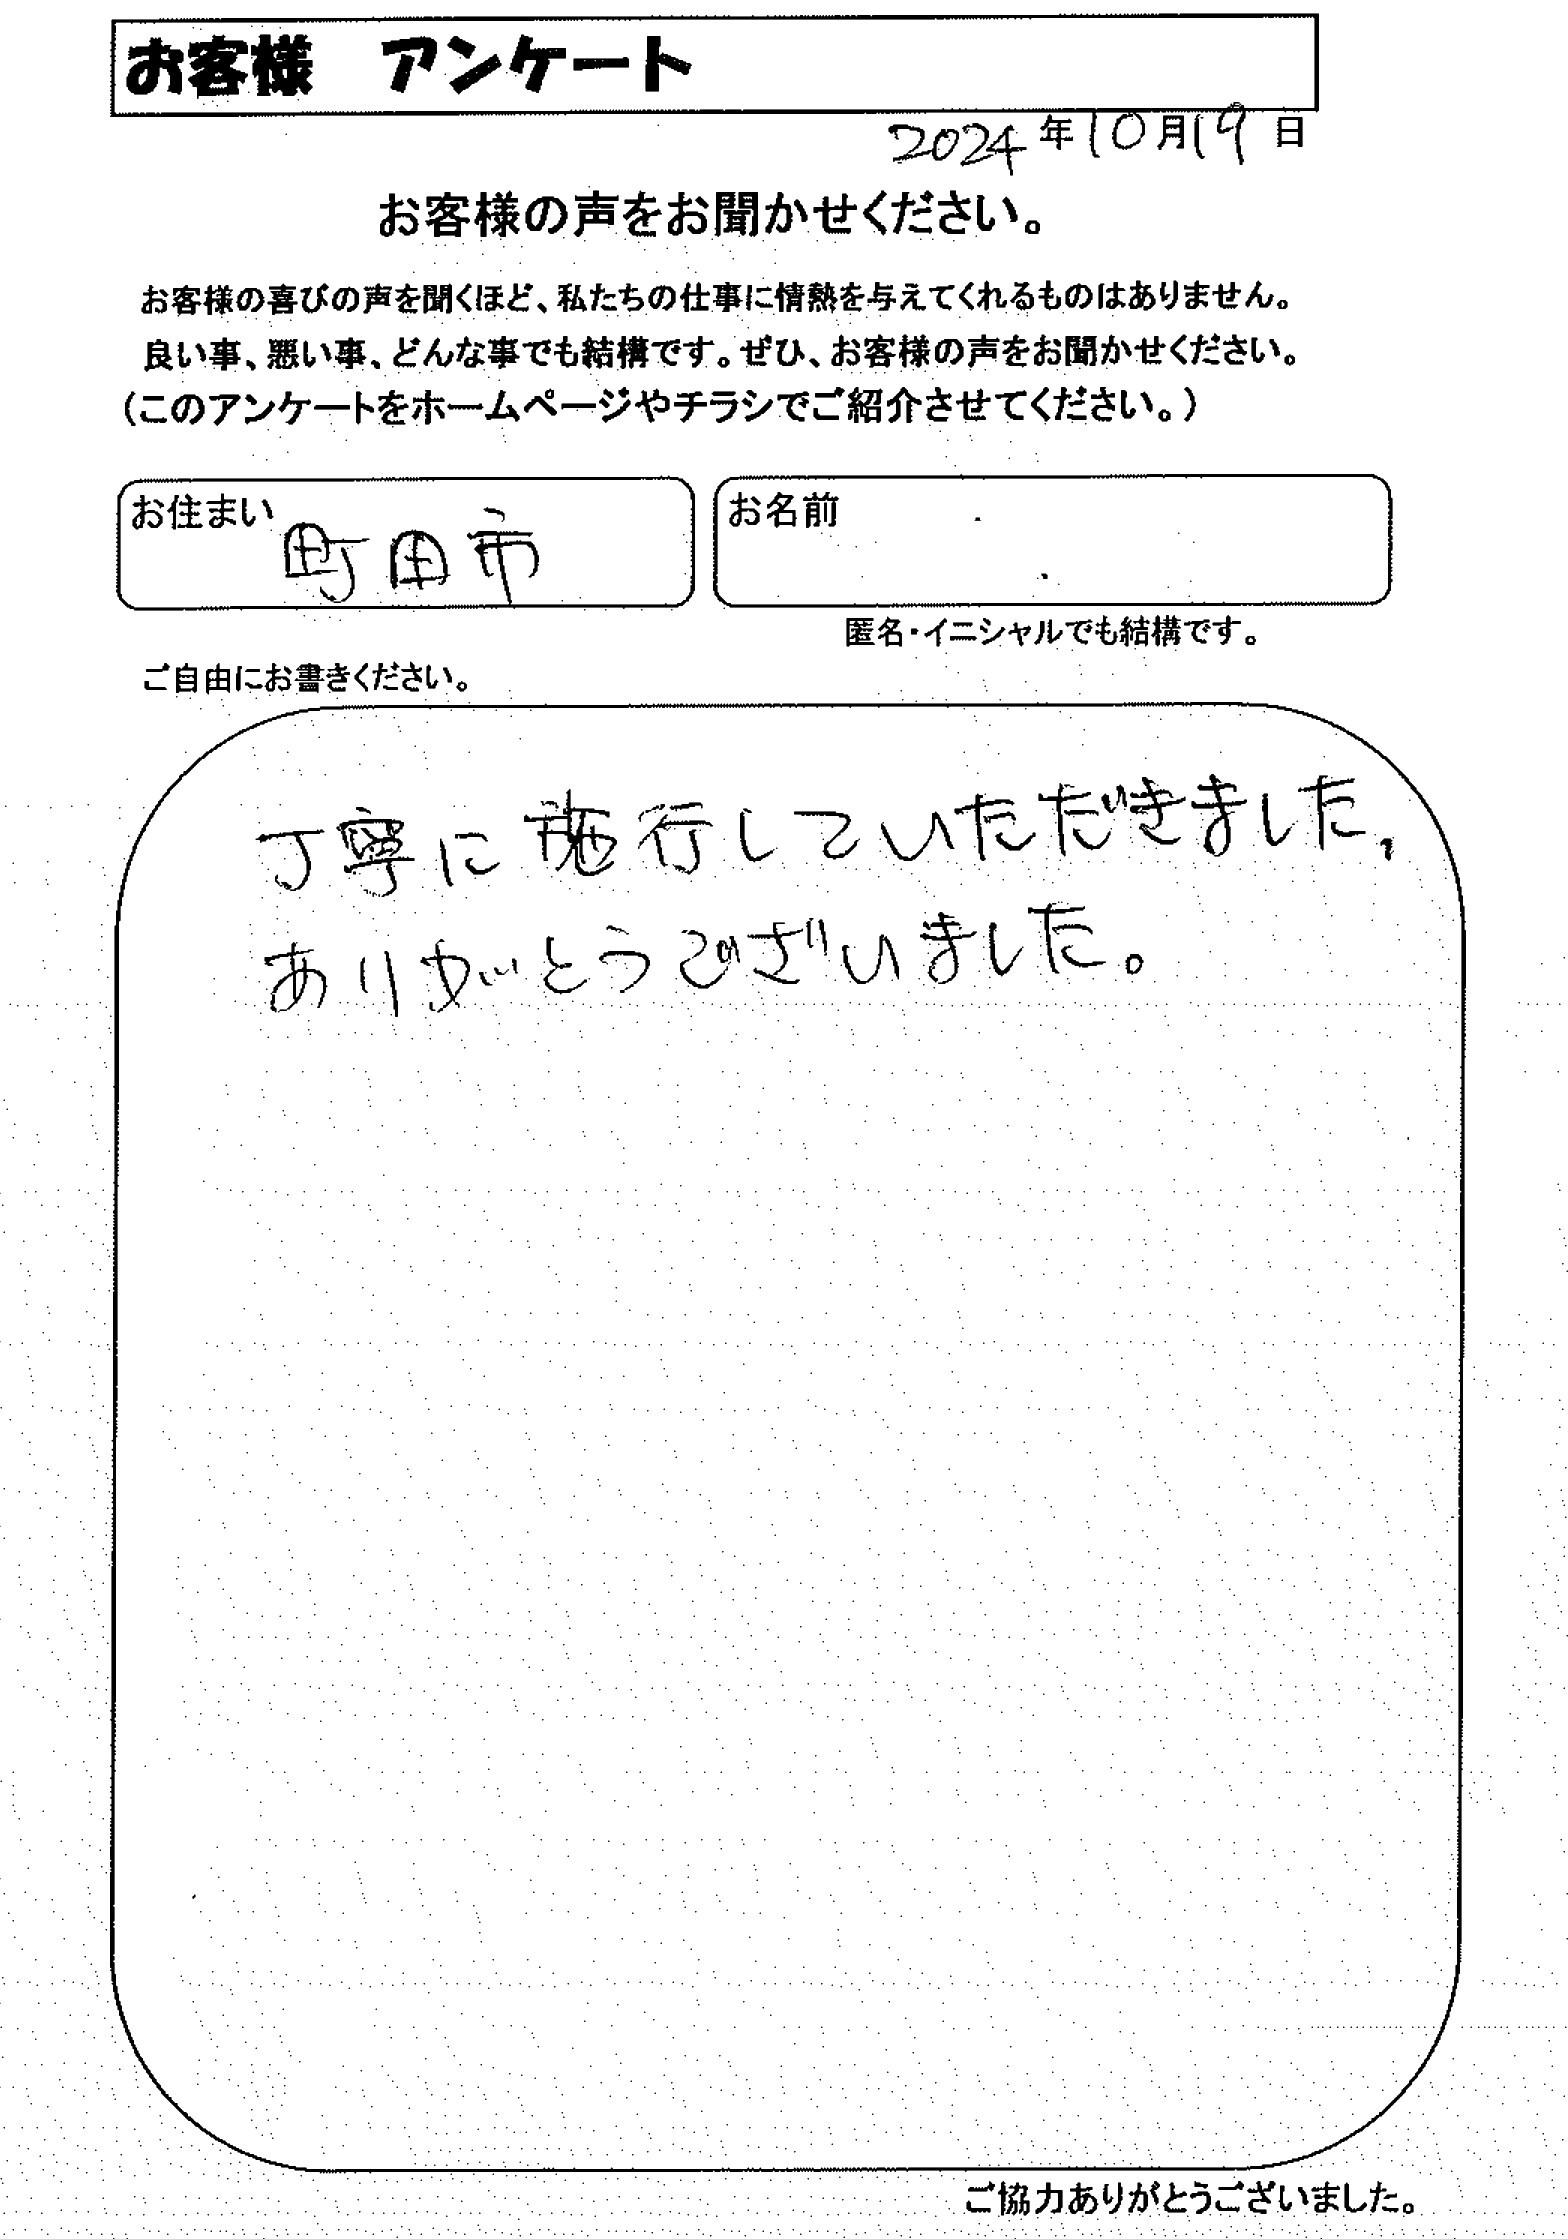 お客様 アンケート
2024年10月19日
お客様の声をお聞かせください。
お客様の喜びの声を聞くほど、私たちの仕事に情熱を与えてくれるものはありません。
良い事、悪い事、どんな事でも結構です。ぜひ、お客様の声をお聞かせください。
（このアンケートをホームページやチラシでご紹介させてください。）
お住まい 町田市
お名前
匿名・イニシャルでも結構です。
ご自由にお書きください。
丁寧に施行していただきました、
ありがとうございました。
ご協力ありがとうございました。